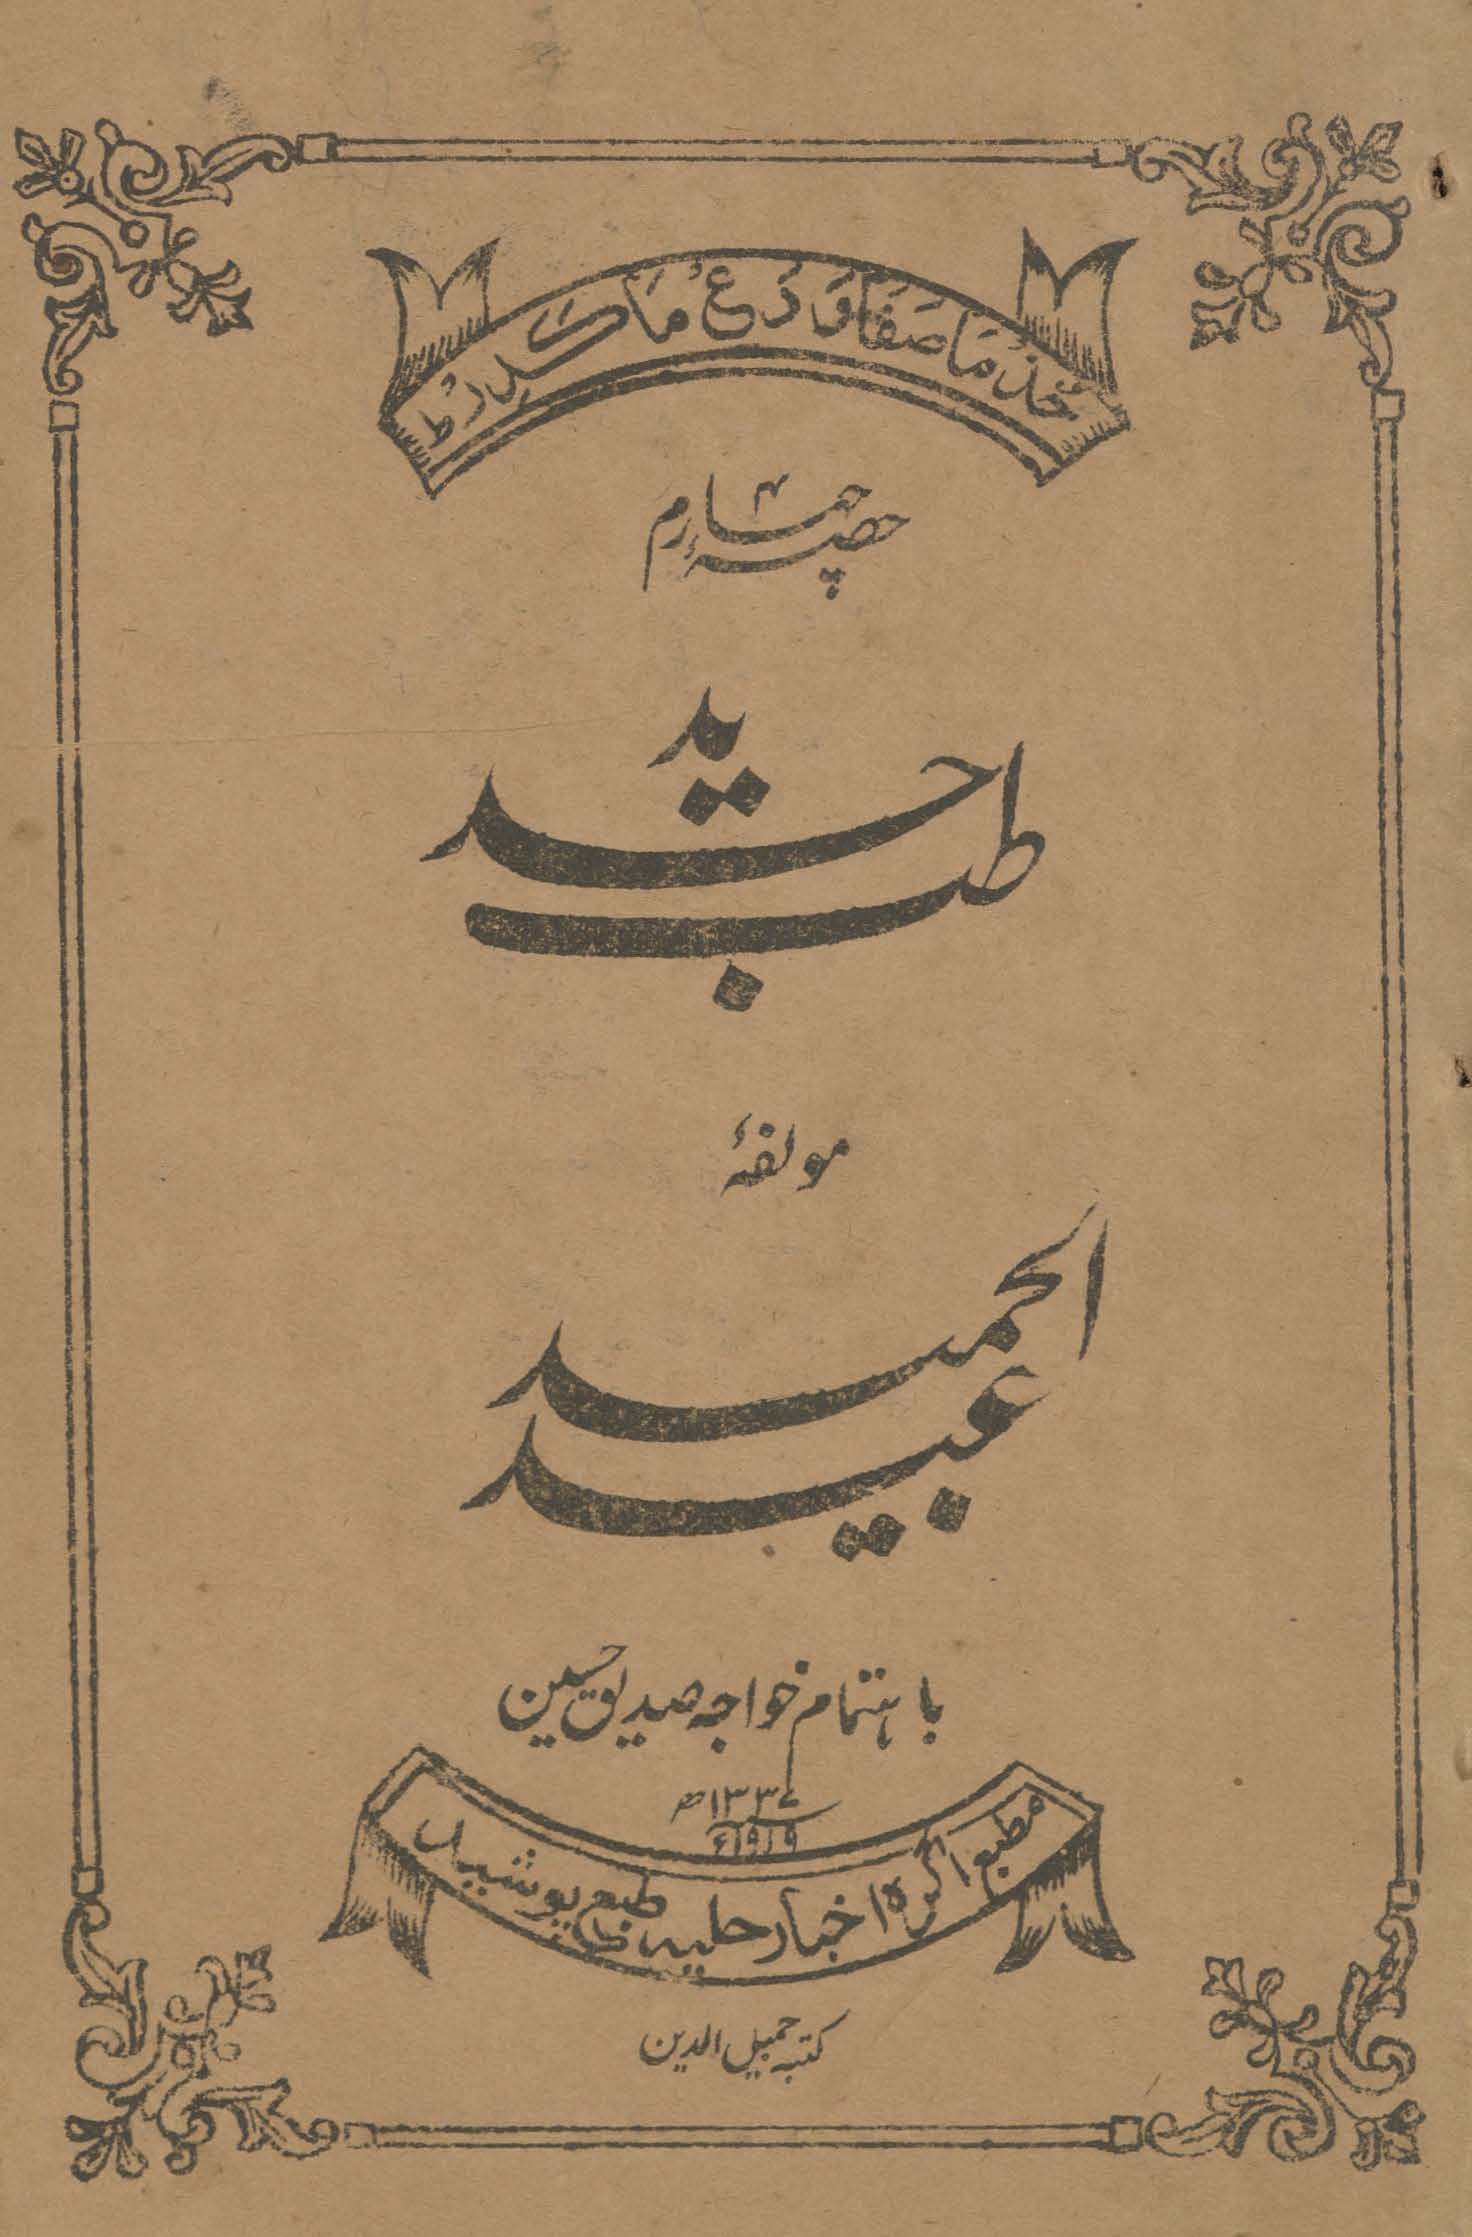 خُذْ مَا صَفَا وَ دَعْ مَا كَدَرْ ط
حصہٴ چہارم
طب جدید
مولفہٴ
عبید الحمید
باہتمام خواجہ صدیق حسین
۱۳۳۷ھ
۱۹۱۹ء
مطبع اگرہ اخبار حلیہ طبع پوشید
کتبہ جمیل الدین